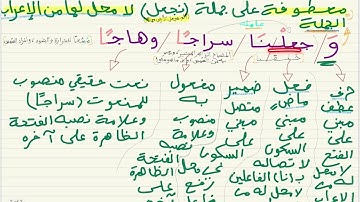 معطوفة على جملة (نجعل) لا محل لها من الإعراب
الجملة
وَ جعلْنَا سراجًا وهاجًا
حرف فعل ضمير مفعول نعت حقيقي منصوب
عطف ماضٍ متصل به للمنعوت (سراجًا)
مبني مبني مبني منصوب وعلامة نصبه الفتحة
على على على وعلامة الظاهرة على آخره
الفتح السكون السكون نصبه
لا محل لاتصاله في محل الفتحة
له بـ (نا) الفاعلين رفع الظاهرة
لا محل له فاعل على